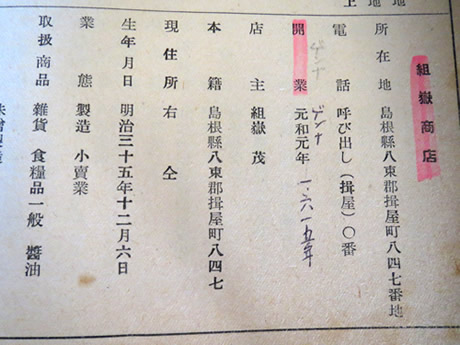 上
組嶽商店
所在地 島根縣八束郡揖屋町八四七番地
電話 呼び出し(揖屋)〇番
開業 元和元年 一、六一五年
ゲンナ
ゲンナ
店主 組嶽茂
本籍 島根縣八束郡揖屋町八四七
現住所 右仝
生年月日 明治三十五年十二月六日
業態 製造 小賣業
取扱商品 雜貨 食糧品一般 醬油
味噌製造